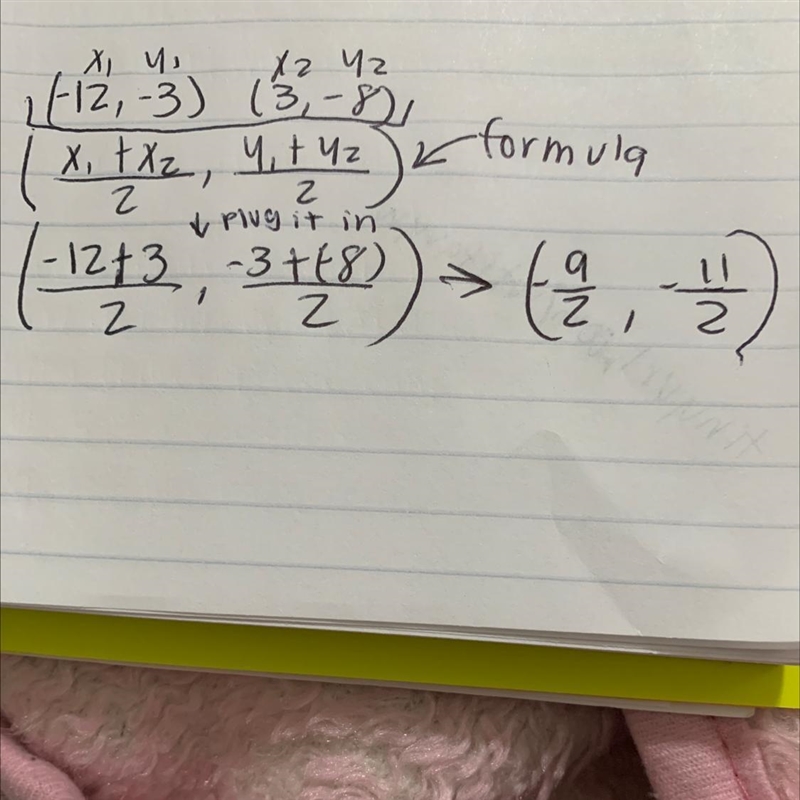 x₁ y₁ x₂ y₂
(-12, -3) (3, -8)
(x₁ + x₂ / 2, y₁ + y₂ / 2) ← formula
↓ plug it in
(-12+3 / 2, -3+(-8) / 2) → (-9/2, -11/2)